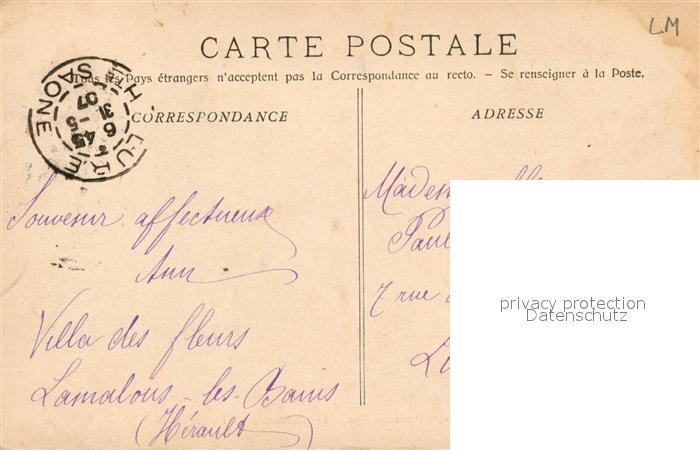 LM
CARTE POSTALE
Tous les Pays étrangers n'acceptent pas la Correspondance au recto. - Se renseigner à la Poste.
CORRESPONDANCE
ADRESSE
LURE
Hte SAONE
6 45
31 - 5
07
Souvenir affectueux
Ann
Villa des fleurs
Lamalous-les-Bains
(Hérault)
7 rue
privacy protection
Datenschutz